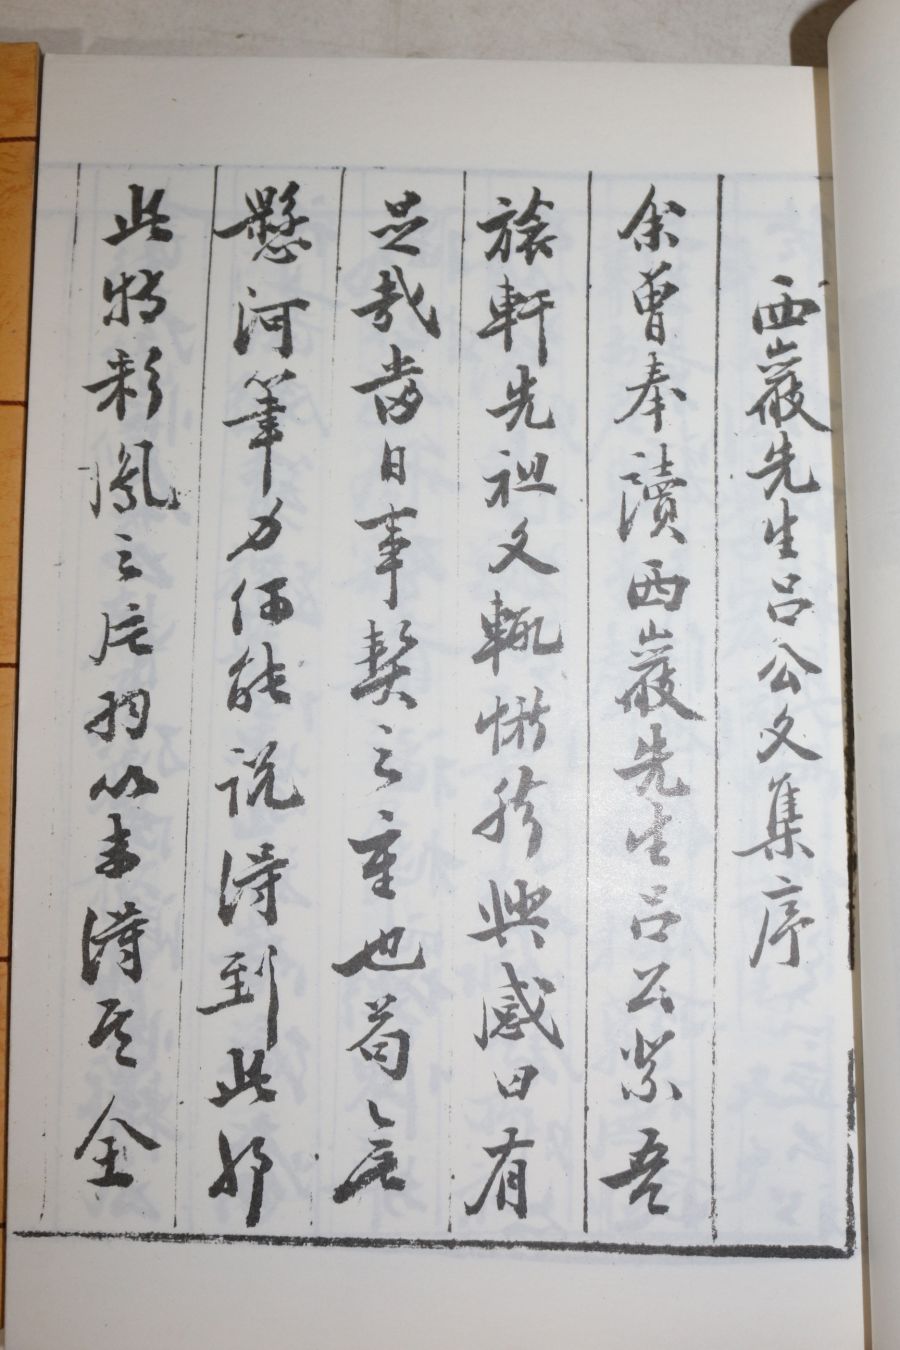 西巖先生呂公文集序
余曾奉讀西巖先生呂公祭吾
旅軒先祖文輒愀然興感曰有
是哉當日事契之重也苟無
懸河筆力何能說得到此耶
此特彩鳳之片羽以未得其全